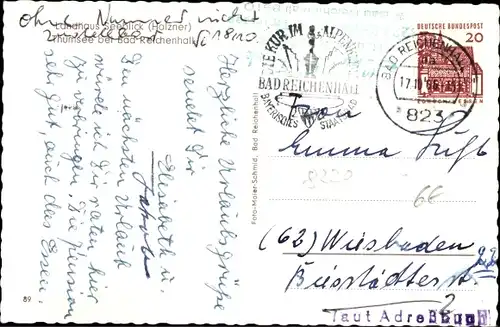 ohne Nummer nicht
zustellbar
18/10
Landhaus Seeblick (Holzner)
Thumsee bei Bad Reichenhall
Herzliche Urlaubsgrüße
sendet Dir
Elisabeth u.
Den nächsten Urlaub
würde ich Dir raten, hier
zu verbringen. Die Pension
sehr gut, auch das Essen
89
Foto-Maier-Schmid, Bad Reichenhall
DIE KUR IM ALPENKLIMA
BAD REICHENHALL
BAYERISCHES STAATSBAD
BAD REICHENHALL
17.10.66
823
DEUTSCHE BUNDESPOST
20
LORSCH/HESSEN
Frau
Emma
8220
6E
(62) Wiesbaden
Bierstädterst.
2
laut Adreßbuch